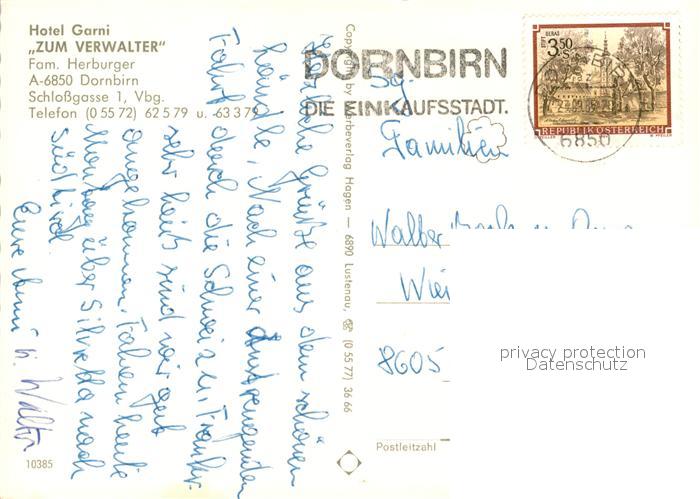 Hotel Garni
„ZUM VERWALTER“
Fam. Herburger
A-6850 Dornbirn
Schloßgasse 1, Vbg.
Telefon (0 55 72) 62 5 79 u. -63 3 79
Herzliche Grüße aus dem schönen
Ländle. Nach einer anstrengenden
Fahrt durch die Schweiz u. Frankr.
sehr heiß sind wir gut
angekommen. Fahren heute
Montag über Silvretta nach
Südtirol.
Eure u. Walter
10385
Copyright by Farbenverlag Hagen — 6890 Lustenau, ☎ (0 55 77) 36 66
DORNBIRN
DIE EINKAUFSSTADT.
P.ST. URBAS
3.50
S
REPUBLIK ÖSTERREICH
6850
Familien
Walter
8605
Postleitzahl
privacy protection
Datenschutz